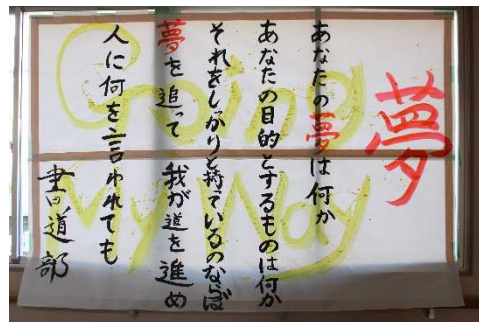 夢
あなたの夢は何か
あなたの目的とするものは何か
それをしっかりと持ているのならば
夢を追って 我が道を進め
人に何を言われても
書道部
Going
My Way